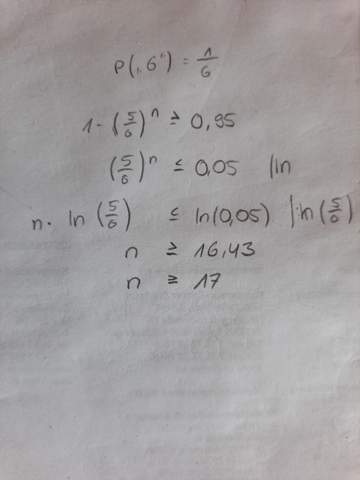 P(„6“) = 1/6
1 - (5/6)^n ≥ 0,95
(5/6)^n ≤ 0,05 |ln
n · ln (5/6) ≤ ln(0,05) |: ln (5/6)
n ≥ 16,43
n ≥ 17